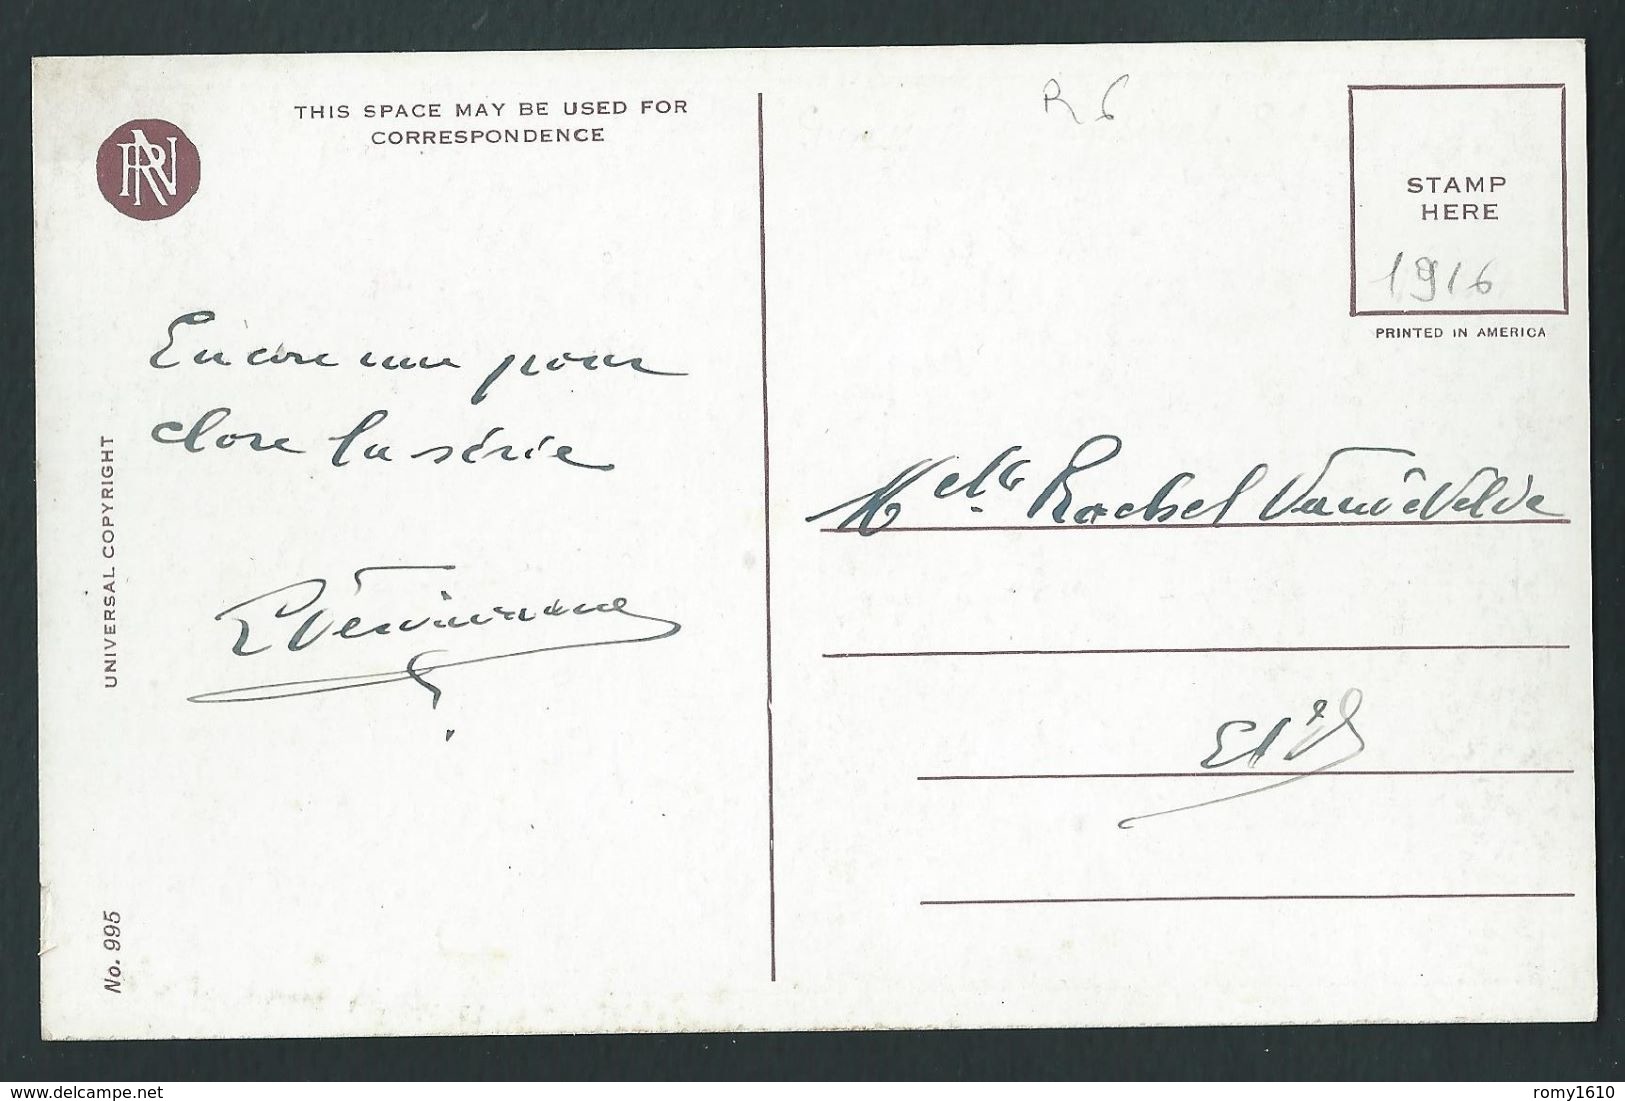 THIS SPACE MAY BE USED FOR
CORRESPONDENCE
RN
R 6
STAMP
HERE
1916
PRINTED IN AMERICA
Encore une pour
clore la série
UNIVERSAL COPYRIGHT
No. 995
Melle. Rachel Vandevelde
delcampe.net
romy1610